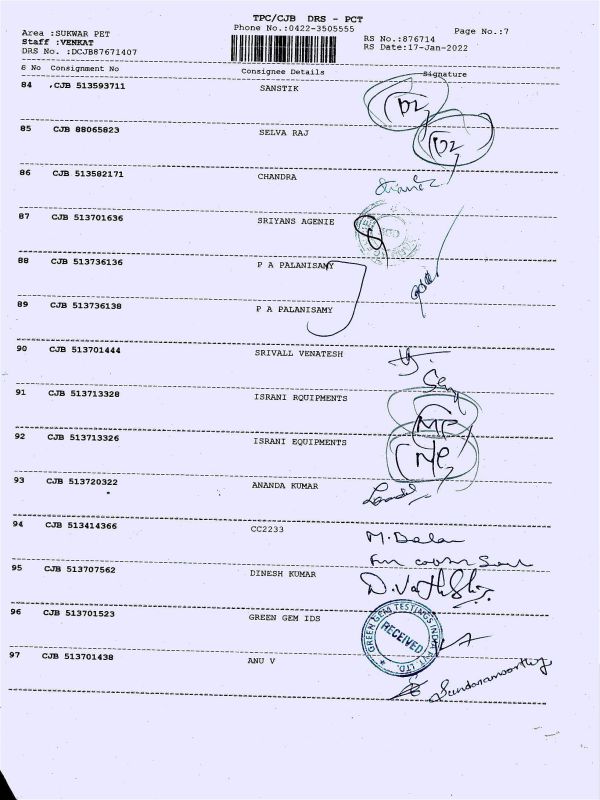 TPC/CJB DRS - PCT
Phone No.:0422-3505555
Page No.:7
Area :SUKWAR PET
Staff :VENKAT
DRS No. :DCJB87671407
RS No.:876714
RS Date:17-Jan-2022
S No Consignment No Consignee Details Signature
84 CJB 513593711 SANSTIK
85 CJB 88065823 SELVA RAJ
86 CJB 513582171 CHANDRA
87 CJB 513701636 SRIYANS AGENIE
88 CJB 513736136 P A PALANISAMY
89 CJB 513736138 P A PALANISAMY
90 CJB 513701444 SRIVALL VENATESH
91 CJB 513713328 ISRANI RQUIPMENTS
92 CJB 513713326 ISRANI EQUIPMENTS
93 CJB 513720322 ANANDA KUMAR
94 CJB 513414366 CC2233
95 CJB 513707562 DINESH KUMAR
96 CJB 513701523 GREEN GEM IDS
GREEN GEM TESTINGS INDIA PVT. LTD.
RECEIVED
97 CJB 513701438 ANU V
Sundaramoorthy